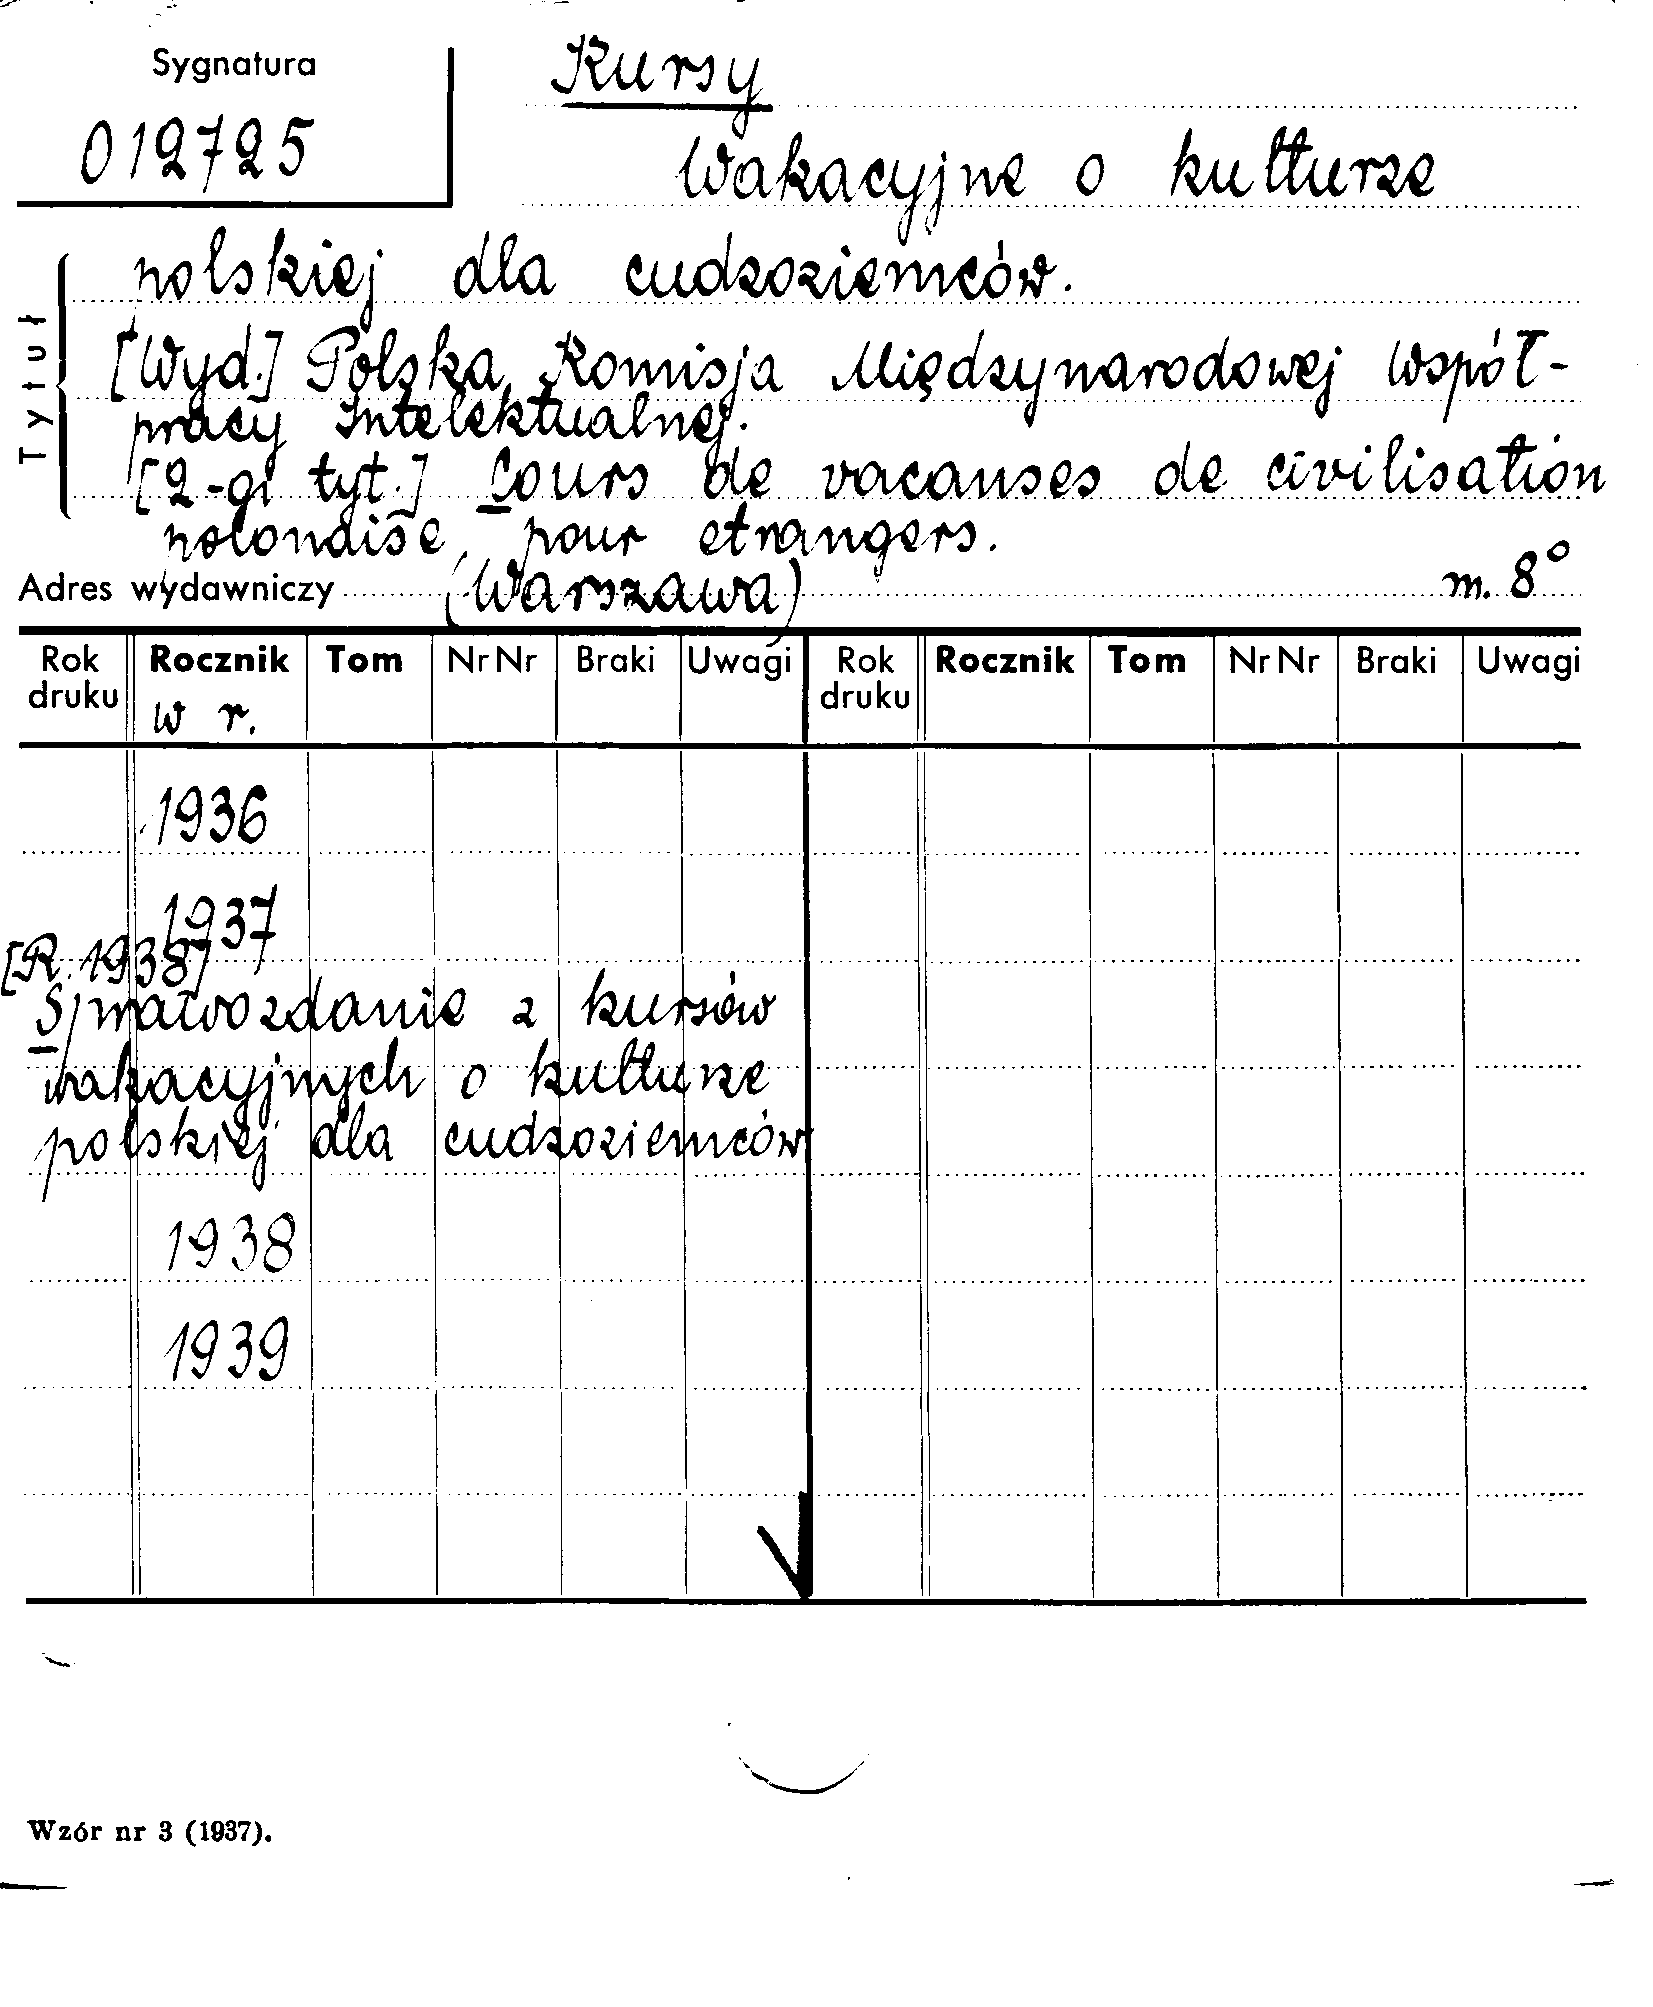 Sygnatura
012725
Kursy
Wakacyjne o kulturze
polskiej dla cudzoziemców.
[Wyd.] Polska Komisja Międzynarodowej Współ-
pracy Intelektualnej.
[2-gi tyt.] Cours de vacanses de civilisation
polondise pour etrangers.
Tytuł
Adres wydawniczy (Warszawa) m. 8°
Rok druku Rocznik Tom Nr Nr Braki Uwagi Rok druku Rocznik Tom Nr Nr Braki Uwagi
w r.
1936
1937
[R. 1938]
Sprawozdanie z kursów
wakacyjnych o kulturze
polskiej dla cudzoziemców
1938
1939
Wzór nr 3 (1937).